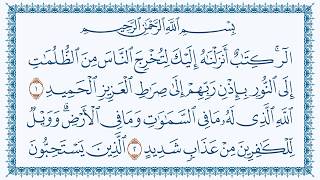 بِسْمِ اللَّهِ الرَّحْمَٰنِ الرَّحِيمِ
الٓر ۚ كِتَٰبٌ أَنزَلْنَٰهُ إِلَيْكَ لِتُخْرِجَ النَّاسَ مِنَ الظُّلُمَٰتِ
إِلَى النُّورِ بِإِذْنِ رَبِّهِمْ إِلَىٰ صِرَٰطِ الْعَزِيزِ الْحَمِيدِ ١
اللَّهِ الَّذِي لَهُ مَا فِي السَّمَٰوَٰتِ وَمَا فِي الْأَرْضِ ۗ وَوَيْلٌ
لِّلْكَٰفِرِينَ مِنْ عَذَابٍ شَدِيدٍ ٢ الَّذِينَ يَسْتَحِبُّونَ